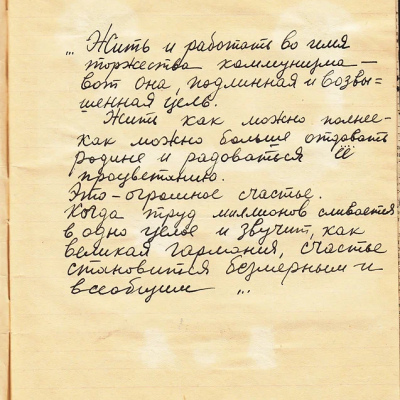 ... Жить и работать во имя
торжества коммунизма —
вот она, подлинная и возвы-
шенная цель.
Жить как можно полнее -
как можно больше отдавать
родине и радоваться её
процветанию.
Это - огромное счастье.
Когда труд миллионов сливается
в одно целое и звучит, как
великая гармония, счастье
становится безмерным и
всеобщим ...